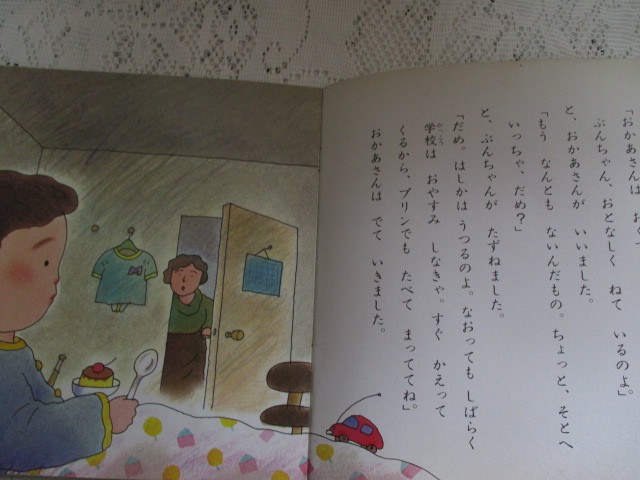 「おかあさんは
ぶんちゃん、おとなしく　ねて　いるのよ。」
と、おかあさんが　いいました。
「もう　なんとも　ないんだもの。ちょっと、そとへ
いっちゃ、だめ？」
と、ぶんちゃんが　たずねました。
「だめ。はしかは　うつるのよ。なおっても　しばらく
学校は　おやすみ　しなきゃ。すぐ　かえって
がっこう
くるから、プリンでも　たべて　まっててね」。
おかあさんは　でて　いきました。